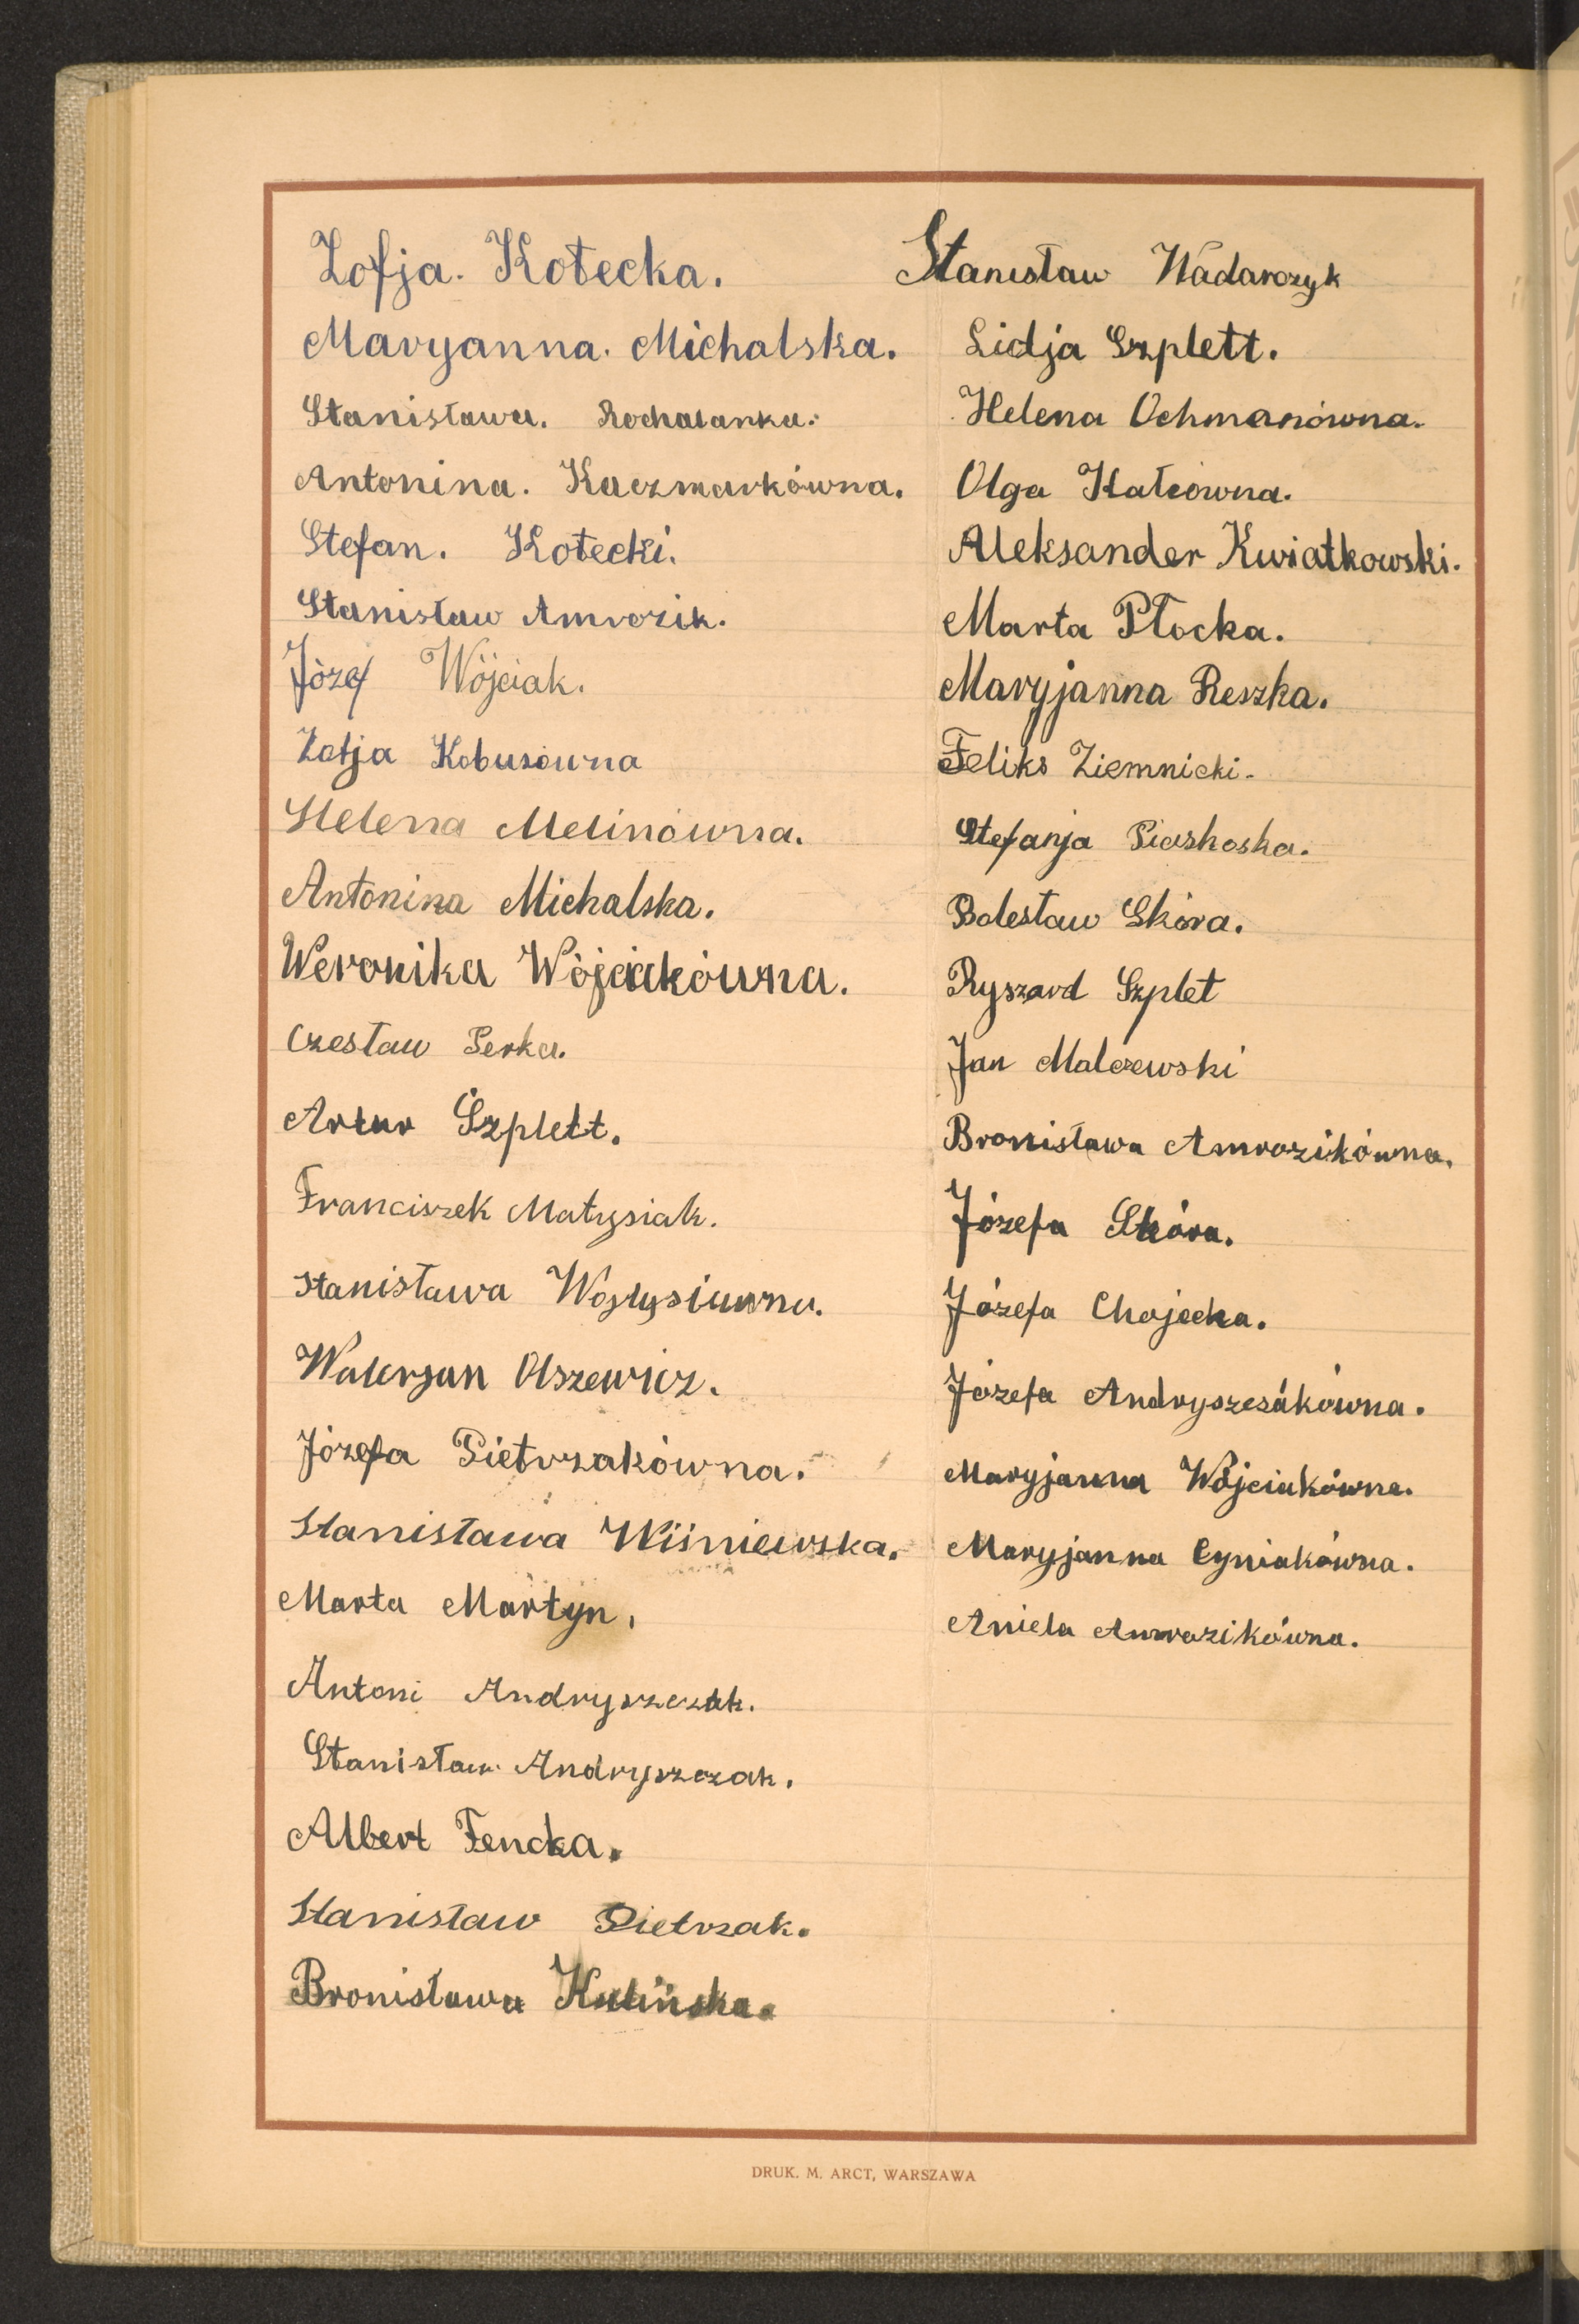 Zofja. Kotecka.
Maryanna. Michalska.
Stanisława. Rochalanka.
Antonina. Kaczmarkówna.
Stefan. Kotecki.
Stanisław Amrozik.
Józef Wójciak.
Zofja Kobusówna
Helena Melinówna.
Antonina Michalska.
Weronika Wójciakówna.
Czesław Perka.
Artur Szplett.
Franciszek Matysiak.
Stanisława
Waleryan Olszewicz.
Józefa Pietrzakówna.
Stanisława Wiśniewska.
Marta Martyn.
Antoni Andryszczak.
Stanisław Andryszczak.
Albert Fencka.
Stanisław Pietrzak.
Bronisława Kulińska.
Stanisław Wadarczyk
Lidja Szplett.
Helena Ochmanówna.
Olga
Aleksander Kwiatkowski.
Marta Płocka.
Maryjanna Reszka.
Feliks Ziemnicki.
Stefanja Piaskoska.
Bolesław Skóra.
Ryszard Szplet
Jan Malczewski
Bronisława Amrozikówna.
Józefa Skóra.
Józefa Chojecka.
Józefa Andryszczákówna.
Maryjanna Wójciakówna.
Maryjanna Cyniakówna.
Aniela Amrozikówna.
DRUK. M. ARCT, WARSZAWA